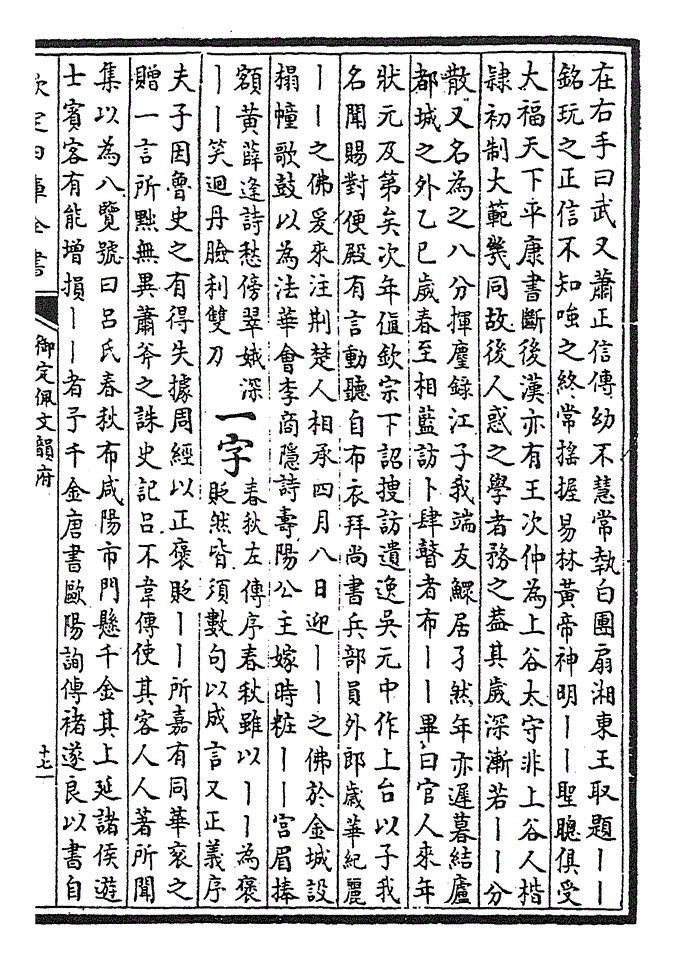 在右手曰武又蕭正信傳幼不慧常執白團扇湘東王取題丨丨
銘玩之正信不知嗤之終常搖握易林黄帝神明丨丨聖聰俱受
大福天下平康書斷後漢亦有王次仲為上谷太守非上谷人楷
隸初制大範幾同故後人惑之學者務之葢其歲深漸若丨丨分
散又名為之八分揮麈録江子我端友鰥居孑然年亦遲暮結廬
都城之外乙巳歲春至相藍訪卜肆瞽者布丨丨畢曰官人來年
狀元及第矣次年值欽宗下詔搜訪遺逸吳元中作上台以子我
名聞賜對便殿有言動聽自布衣拜尚書兵部員外郎歲華紀麗
丨丨之佛爰來注荆楚人相承四月八日迎丨丨之佛於金城設
榻幢歌鼓以為法華會李商隱詩壽陽公主嫁時粧丨丨宮眉捧
額黄薛逢詩愁傍翠娥深
丨丨笑迴丹臉利雙刀
一字
春秋左傳序春秋雖以丨丨為褒
貶然皆須數句以成言又正義序
夫子因魯史之有得失據周經以正褒貶丨丨所嘉有同華衮之
贈一言所黜無異蕭斧之誅史記吕不韋傳使其客人人著所聞
集以為八覽號曰吕氏春秋布咸陽市門懸千金其上延諸侯遊
士賓客有能增損丨丨者予千金唐書歐陽詢傳禇遂良以書自
欽定四庫全書
御定佩文韻府
十七